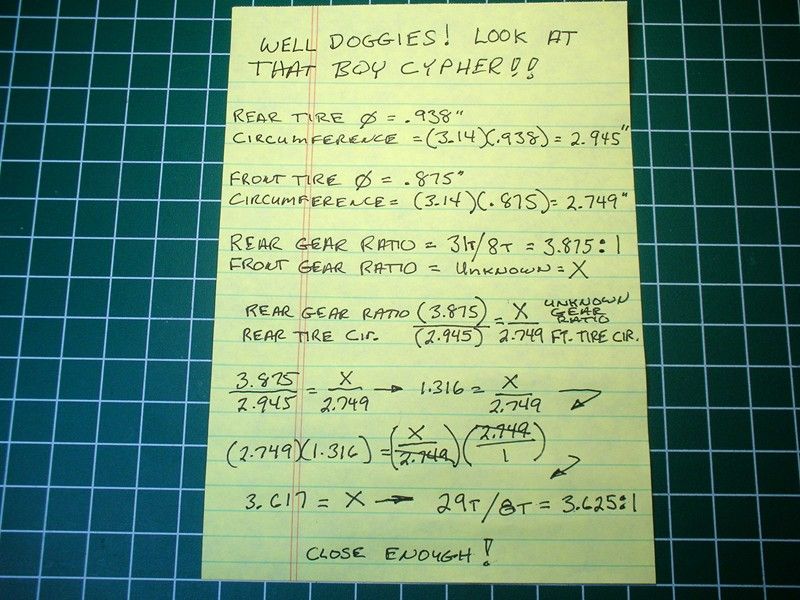 WELL DOGGIES! LOOK AT
THAT BOY CYPHER!!
REAR TIRE Ø = .938"
CIRCUMFERENCE = (3.14)(.938) = 2.945"
FRONT TIRE Ø = .875"
CIRCUMFERENCE = (3.14)(.875) = 2.749"
REAR GEAR RATIO = 31T/8T = 3.875:1
FRONT GEAR RATIO = UNKNOWN = X
REAR GEAR RATIO (3.875) = X UNKNOWN GEAR RATIO
REAR TIRE CIR. (2.945) 2.749 FT. TIRE CIR.
3.875 = X → 1.316 = X
2.945 2.749 2.749
(2.749)(1.316) = (X/2.749)(2.749/1)
3.617 = X → 29T/8T = 3.625:1
CLOSE ENOUGH!